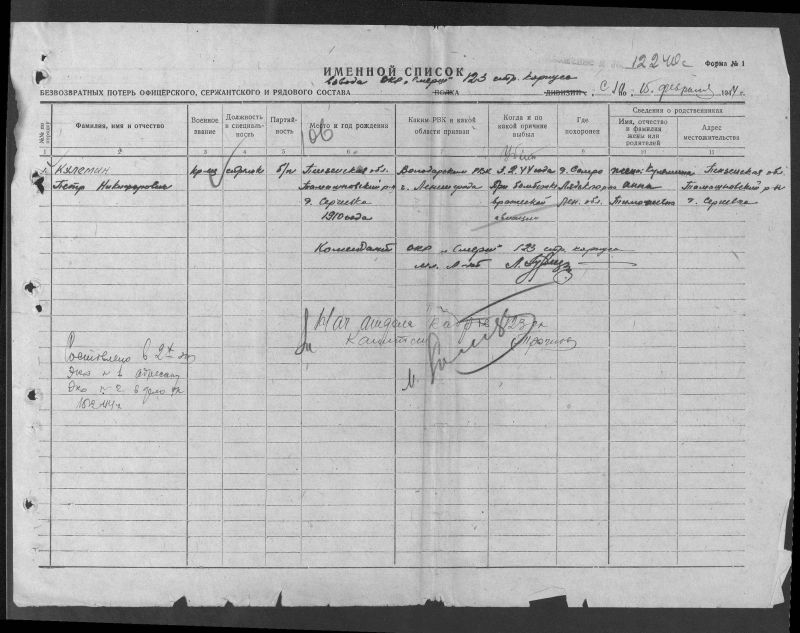 12240с
Форма № 1
ИМЕННОЙ СПИСОК
взвода ОКР „Смерш" 123 стр. корпуса
БЕЗВОЗВРАТНЫХ ПОТЕРЬ ОФИЦЕРСКОГО, СЕРЖАНТСКОГО И РЯДОВОГО СОСТАВА ПОЛКА ДИВИЗИИ, с 1 по 15 февраля 1944 г.
№№ по порядку
Фамилия, имя и отчество
Военное звание
Должность и специальность
Партийность
Место и год рождения
Каким РВК и какой области призван
Когда и по какой причине выбыл
Где похоронен
Сведения о родственниках
Имя, отчество и фамилия жены или родителей
Адрес местожительства
1 2 3 4 5 6 7 8 9 10 11
Убит
1. кр-ец стрелок б/п Пензенская обл. Володарским РВК 3.2.44 года д. жена: Пензенская обл.
Петр Никифорович р-н г. Ленинграда При бомбежке Анна р-н
д. Сергеевка вражеской Лен. обл. Тимофеевна д. Сергеевка
1910 года авиации
Комендант ОКР „Смерш" 123 стр. корпуса
мл. л-нт
Нач отдела кадров 123 ск
Капитан
Составлено в 2х экз
Экз № 1 адресату
Экз № 2 в дело